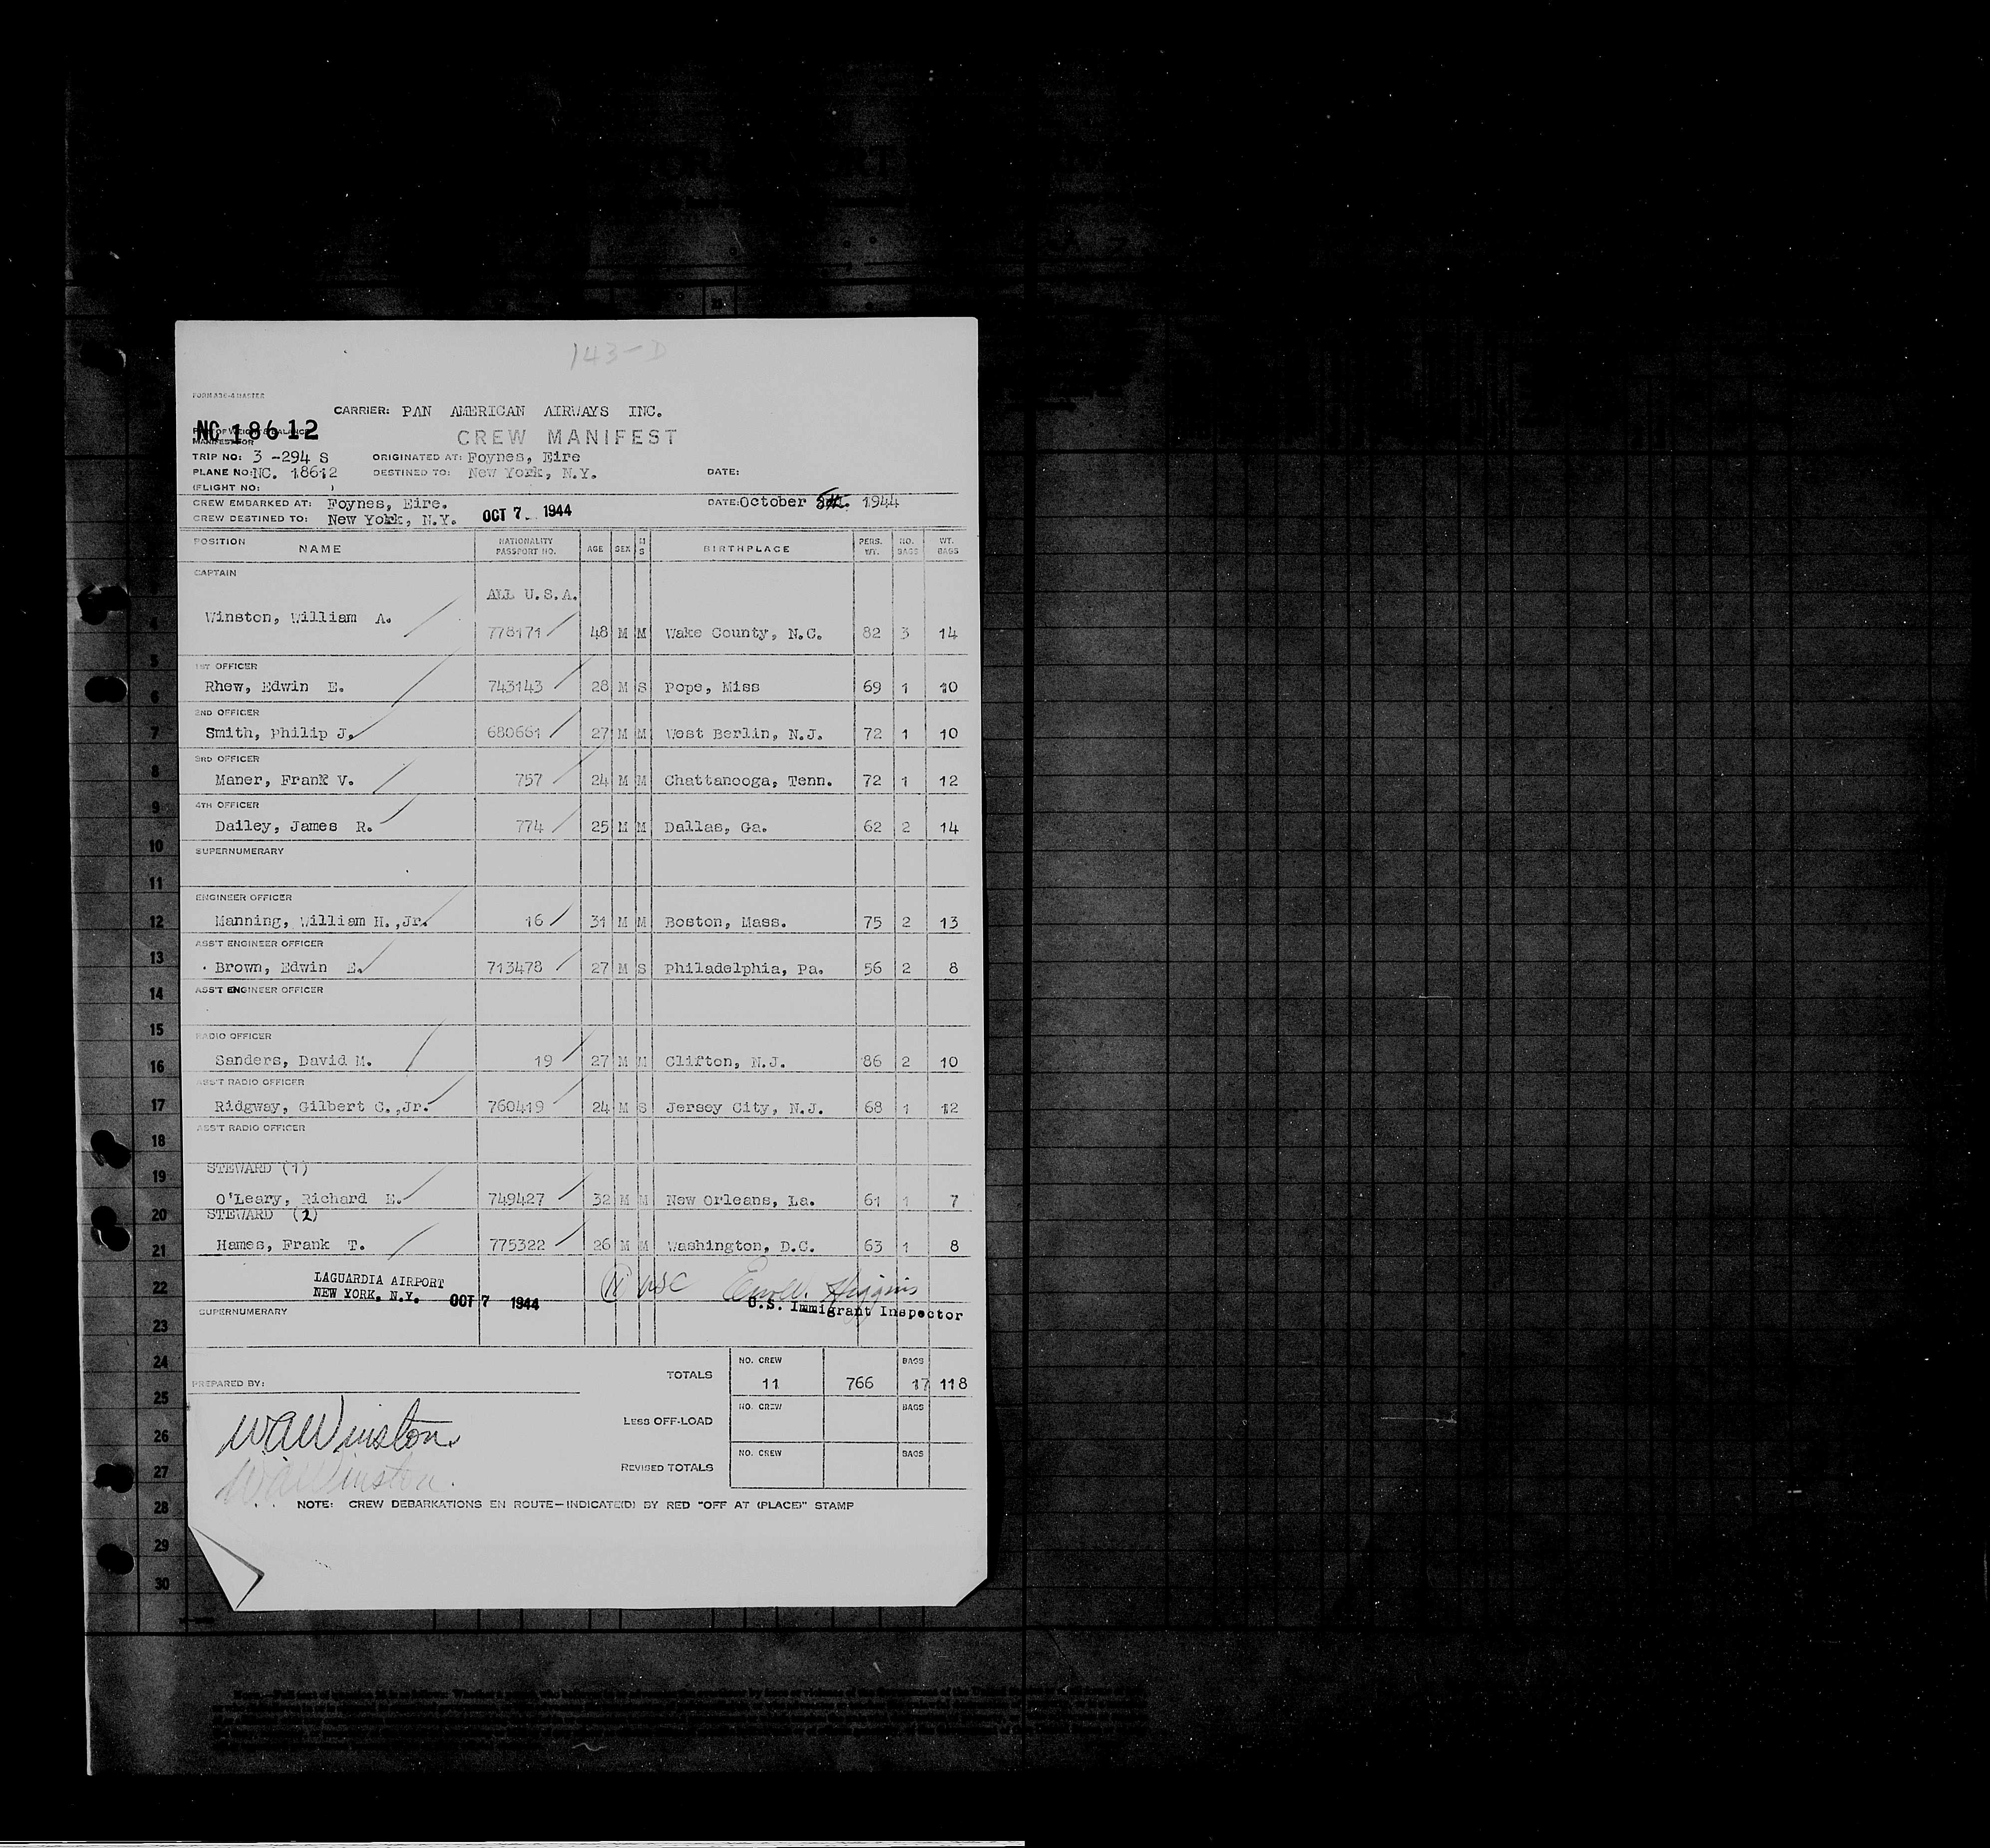 143-D
FORM ADE-4 MASTER
CARRIER: PAN AMERICAN AIRWAYS INC.
NC 18612
MANIFEST FOR
CREW MANIFEST
TRIP NO: 3 -294 S ORIGINATED AT: Foynes, Eire
PLANE NO: NC. 18612 DESTINED TO: New York, N.Y. DATE:
(FLIGHT NO: )
CREW EMBARKED AT: Foynes, Eire. DATE: October 1944
CREW DESTINED TO: New York, N.Y. OCT 7 1944
POSITION NAME NATIONALITY PASSPORT NO. AGE SEX M S BIRTHPLACE PERS. WT. NO. BAGS WT. BAGS
CAPTAIN
ALL U.S.A.
Winston, William A. 778171 48 M M Wake County, N.C. 82 3 14
1ST OFFICER
Rhew, Edwin E. 743143 28 M S Pope, Miss 69 1 10
2ND OFFICER
Smith, Philip J. 680661 27 M M West Berlin, N.J. 72 1 10
3RD OFFICER
Maner, Frank V. 757 24 M M Chattanooga, Tenn. 72 1 12
4TH OFFICER
Dailey, James R. 774 25 M M Dallas, Ga. 62 2 14
SUPERNUMERARY
ENGINEER OFFICER
Manning, William H.,Jr. 16 31 M M Boston, Mass. 75 2 13
ASS'T ENGINEER OFFICER
Brown, Edwin E. 713478 27 M S Philadelphia, Pa. 56 2 8
ASS'T ENGINEER OFFICER
RADIO OFFICER
Sanders, David M. 19 27 M M Clifton, N.J. 86 2 10
ASS'T RADIO OFFICER
Ridgway, Gilbert C.,Jr. 760419 24 M S Jersey City, N.J. 68 1 12
ASS'T RADIO OFFICER
STEWARD (1)
O'Leary, Richard E. 749427 32 M M New Orleans, La. 61 1 7
STEWARD (2)
Hames, Frank T. 775322 26 M M Washington, D.C. 63 1 8
LAGUARDIA AIRPORT
NEW YORK, N.Y. OCT 7 1944
11 USC Higgins
U.S. Immigrant Inspector
SUPERNUMERARY
TOTALS NO. CREW 11 766 BAGS 17 118
PREPARED BY:
W A Winston
LESS OFF-LOAD NO. CREW BAGS
W A Winston
REVISED TOTALS NO. CREW BAGS
NOTE: CREW DEBARKATIONS EN ROUTE—INDICATE(D) BY RED "OFF AT (PLACE)" STAMP
4
5
6
7
8
9
10
11
12
13
14
15
16
17
18
19
20
21
22
23
24
25
26
27
28
29
30